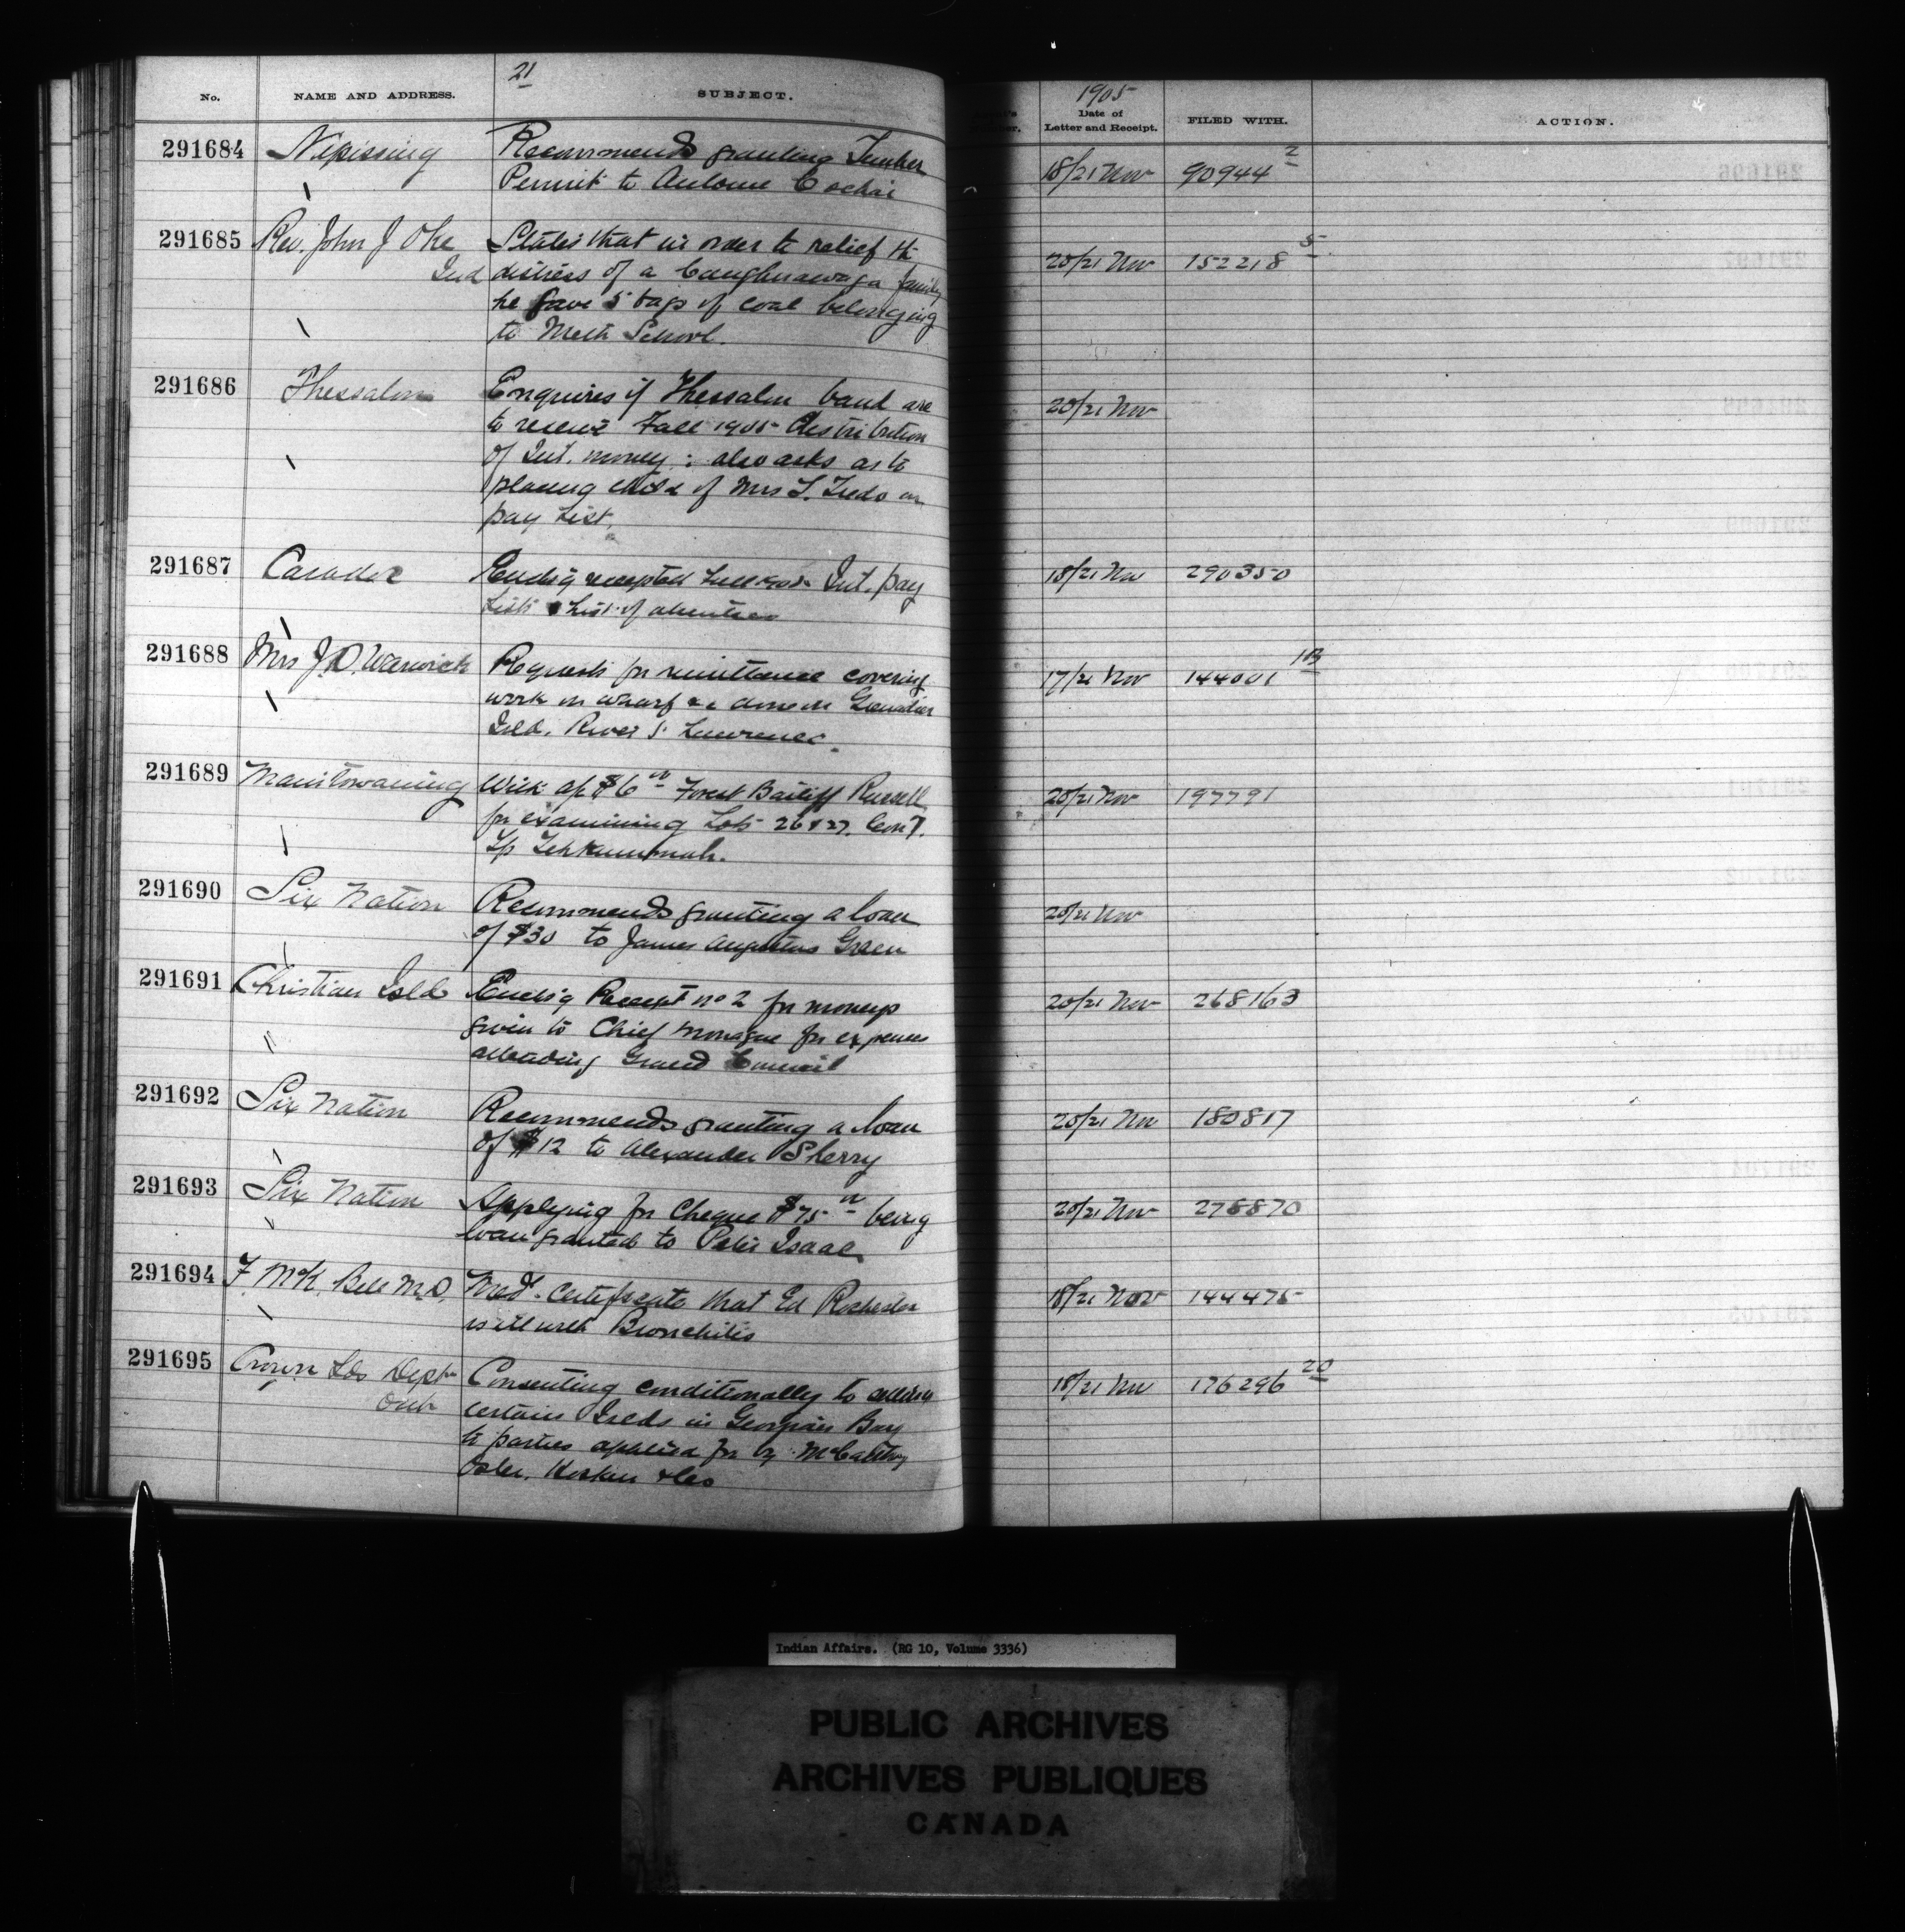 21
No. NAME AND ADDRESS. SUBJECT.
1905
Date of
Letter and Receipt. FILED WITH. ACTION.
291684 Nipissing Recommends granting Timber
Permit to Antoine Cochai
18/21 Nov 90944 2
291685 Rev. John J Oke States that in order to relief the
Ind distress of a Caughnawaga family
he gave 5 bags of coal belonging
to Meth School.
20/21 Nov 152218 5
291686 Thessalon Enquires if Thessalon band are
to receive Fall 1905 distribution
of Int. money : also asks as to
placing child of Mrs on
pay List.
20/21 Nov
291687 Caradoc Encls'g receipted Fall 1905 Int. pay
Lists & List of absentees
18/21 Nov 290350
291688 Mrs J.D. Warwick Requests for remittance covering
work on wharf &c done on Grenadier
Isld. River S. Lawrence.
17/21 Nov 144001 103
291689 Manitowaning With a/c $6 00 Forest Bailiff Russell
for examining Lots 26 & 27 Con
Tp Tehkummah.
20/21 Nov 197791
291690 Six Nation Recommends granting a loan
of $30 to James Augustus Green
20/21 Nov
291691 Christian Isld Encls'g Receipt no 2 for moneys
given to Chief Monague for expenses
attending Grand Council
20/21 Nov 268163
291692 Six Nation Recommends granting a loan
of $12 to Alexander Sherry
20/21 Nov 180817
291693 Six Nation Applying for Cheque $75 00 being
loan granted to Peter Isaac
20/21 Nov 278870
291694 F. McK. Bell M.D. Med. Certificate that Ed Rochester
is ill with Bronchitis
18/21 Nov 144475
291695 Crown Lds Dept Consenting conditionally to selling
Ont certain Islds in Georgian Bay
to parties applied for by McCarthy
Osler, Hoskin & Co
18/21 Nov 176296 20
Indian Affairs. (RG 10, Volume 3336)
PUBLIC ARCHIVES
ARCHIVES PUBLIQUES
CANADA